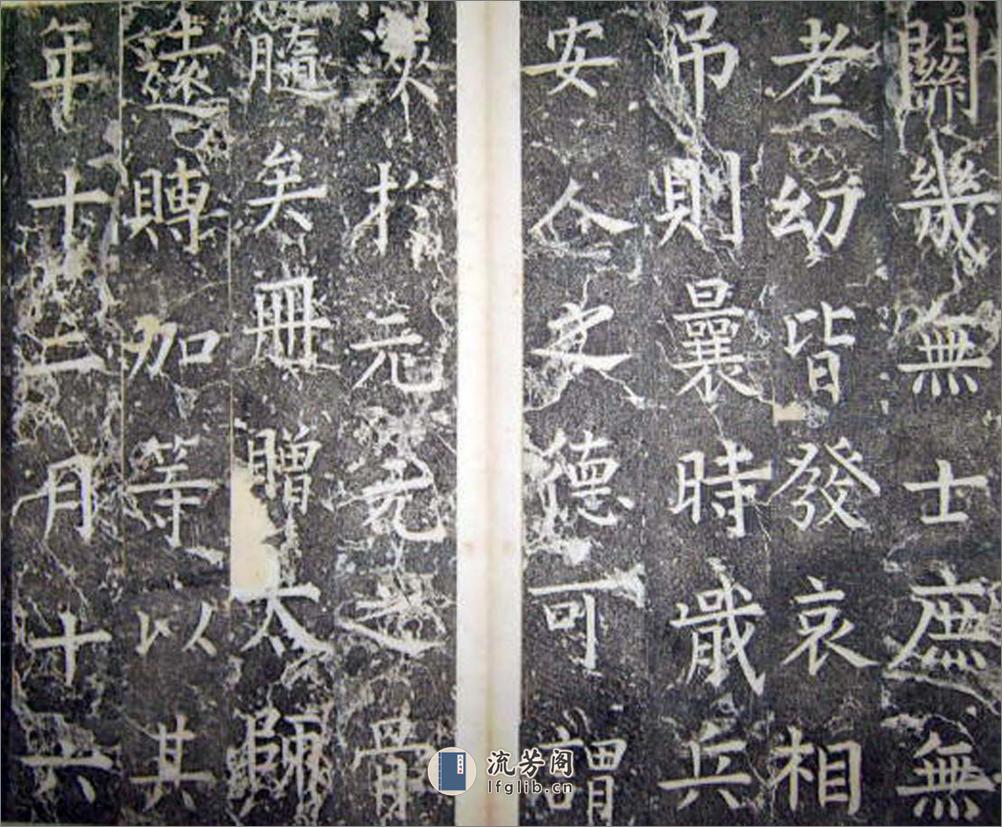 關幾無士庶無
老幼皆發哀相
吊則曩時戢兵
安人之德可謂
浹扵元元之骨
髓矣冊贈太師
遠賻加等以其
年十二月十六
流芳阁
lfglib.cn